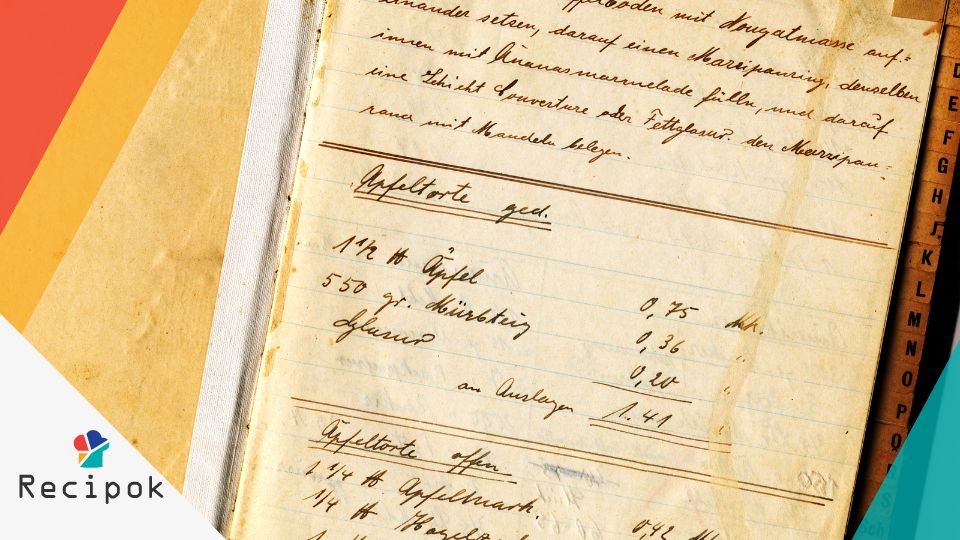 boden mit Nougatmasse auf-
einander setzen, darauf einen Marzipanring, denselben
innen mit Ananasmarmelade fülln, und darauf
eine Schicht Couverture oder Fettglasur. den Marzipan-
rand mit Mandeln belegen.
Apfeltorte ged.
1 1/2 ℔ Äpfel 0,75 Mk.
550 gr. Mürbteig 0,36 "
Glasur 0,20 "
an Auslagen 1.41 "
Apfeltorte offen
1 1/4 ℔ Apfelmark. 0,42
1/4 ℔
D
E
F
G
H
J
K
L
M
N
O
P
Q
R
S
Sch
Recipok